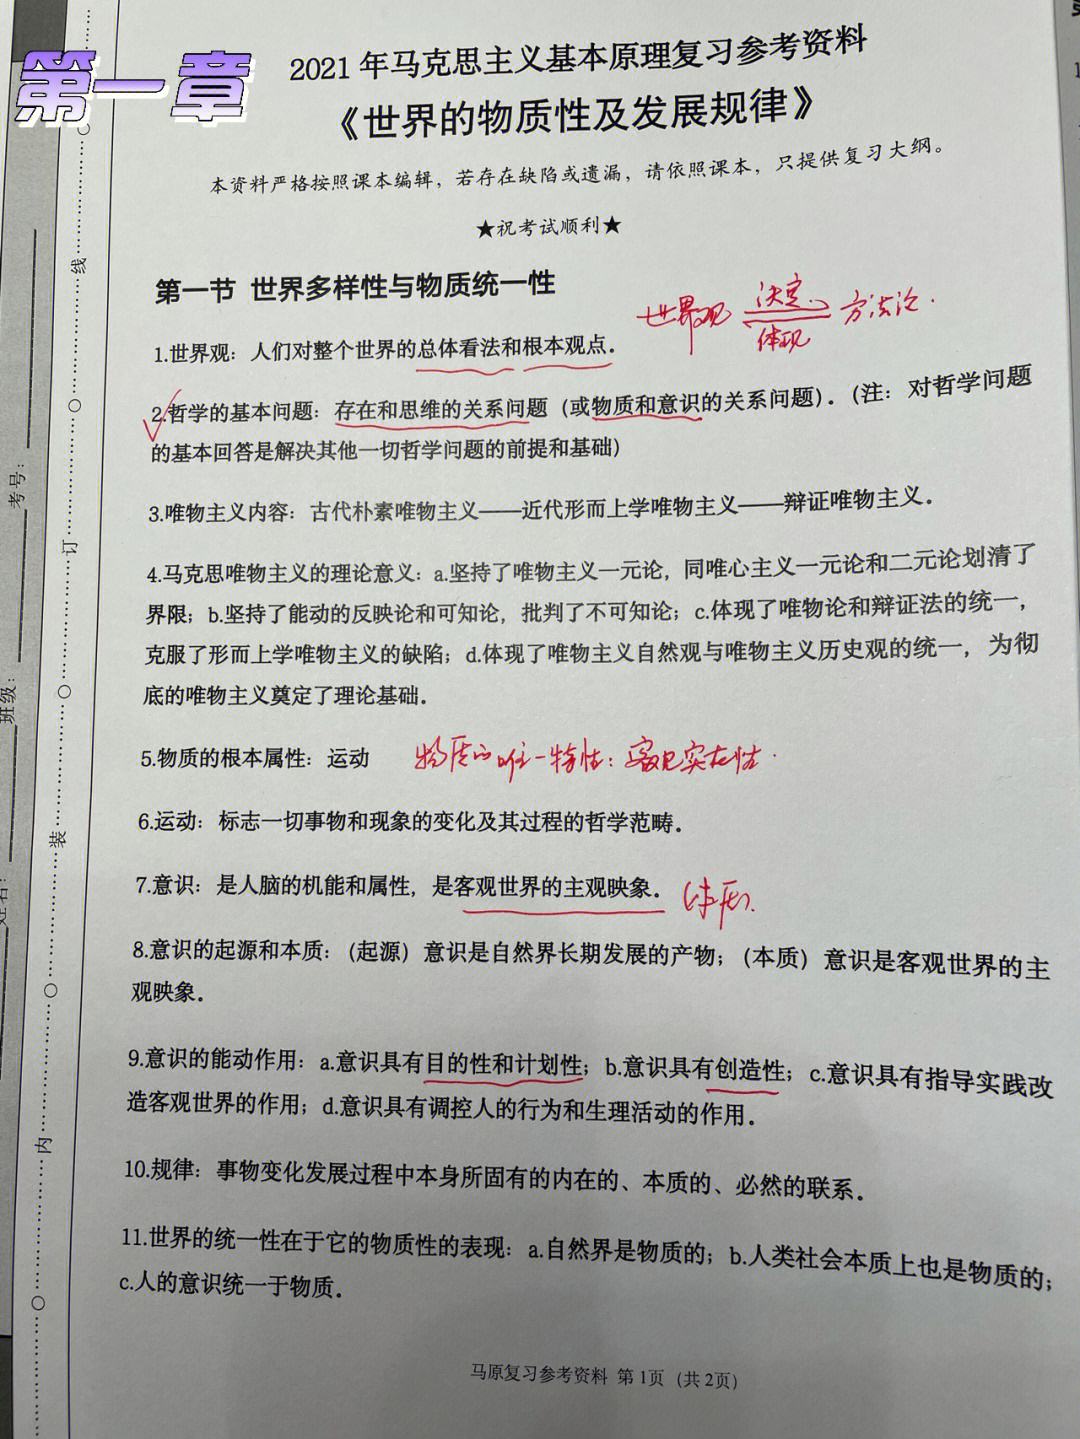 第一章
2021年马克思主义基本原理复习参考资料
《世界的物质性及发展规律》
本资料严格按照课本编辑，若存在缺陷或遗漏，请依照课本，只提供复习大纲。
★祝考试顺利★
第一节 世界多样性与物质统一性
世界观 决定 体现 方法论.
1.世界观：人们对整个世界的总体看法和根本观点.
2.哲学的基本问题：存在和思维的关系问题（或物质和意识的关系问题）.（注：对哲学问题
的基本回答是解决其他一切哲学问题的前提和基础）
3.唯物主义内容：古代朴素唯物主义——近代形而上学唯物主义——辩证唯物主义.
4.马克思唯物主义的理论意义：a.坚持了唯物主义一元论，同唯心主义一元论和二元论划清了
界限；b.坚持了能动的反映论和可知论，批判了不可知论；c.体现了唯物论和辩证法的统一，
克服了形而上学唯物主义的缺陷；d.体现了唯物主义自然观与唯物主义历史观的统一，为彻
底的唯物主义奠定了理论基础.
5.物质的根本属性：运动 物质的唯一特性：客观实在性.
6.运动：标志一切事物和现象的变化及其过程的哲学范畴.
7.意识：是人脑的机能和属性，是客观世界的主观映象. 本质.
8.意识的起源和本质：（起源）意识是自然界长期发展的产物；（本质）意识是客观世界的主
观映象.
9.意识的能动作用：a.意识具有目的性和计划性；b.意识具有创造性；c.意识具有指导实践改
造客观世界的作用；d.意识具有调控人的行为和生理活动的作用.
10.规律：事物变化发展过程中本身所固有的内在的、本质的、必然的联系.
11.世界的统一性在于它的物质性的表现：a.自然界是物质的；b.人类社会本质上也是物质的；
c.人的意识统一于物质.
马原复习参考资料 第1页（共2页）
线
订
装
内
考号：
班级：
姓名：